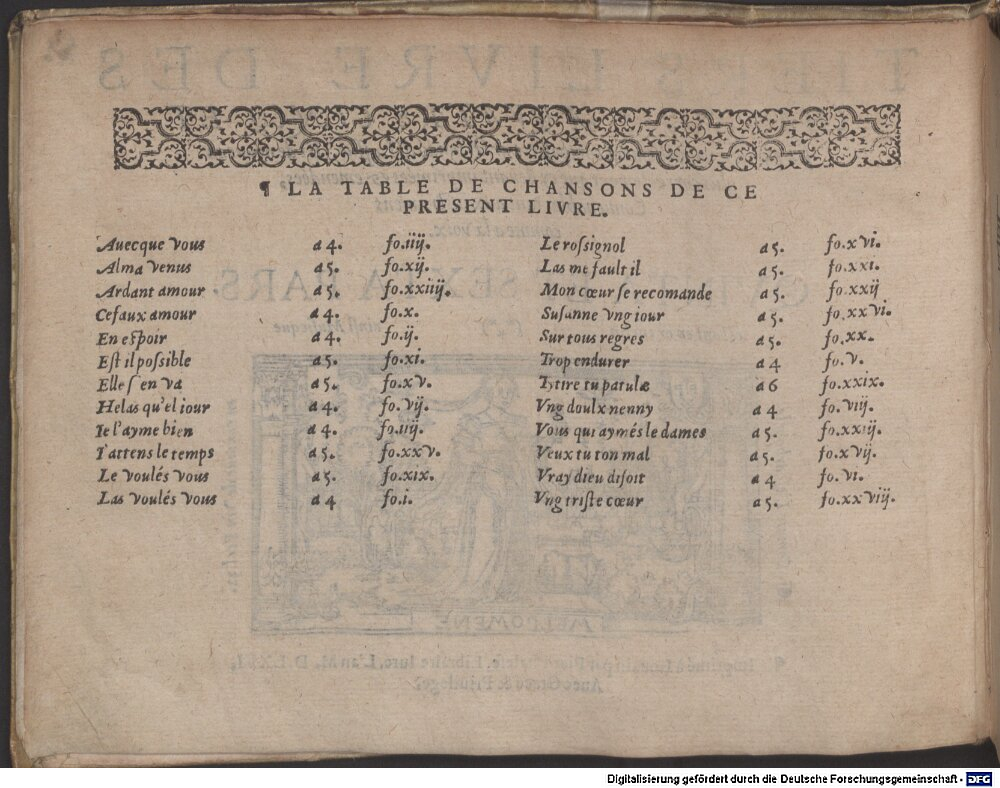 ¶ LA TABLE DE CHANSONS DE CE
PRESENT LIVRE.
Auecque vous a 4. fo.iiij.
Alma venus a 5. fo.xij.
Ardant amour a 5. fo.xxiiij.
Ce faux amour a 4. fo.x.
En espoir a 4. fo.ij.
Est il possible a 5. fo.xi.
Elle s'en va a 5. fo.xv.
Helas qu'el iour a 4. fo.vij.
Ie l'ayme bien a 4. fo.iij.
I'attens le temps a 5. fo.xxv.
Le voulés vous a 5. fo.xix.
Las voulés vous a 4 fo.i.
Le rossignol a 5. fo.xvi.
Las me fault il a 5. fo.xxi.
Mon cœur se recomande a 5. fo.xxij
Susanne vng iour a 5. fo.xxvi.
Sur tous regres a 5. fo.xx.
Trop endurer a 4 fo.v.
Tytire tu patulæ a 6 fo.xxix.
Vng doulx nenny a 4 fo.viij.
Vous qui aymés le dames a 5. fo.xxiij.
Veux tu ton mal a 5. fo.xvij.
Vray dieu disoit a 4 fo.vi.
Vng triste cœur a 5. fo.xxviij.
Digitalisierung gefördert durch die Deutsche Forschungsgemeinschaft - DFG